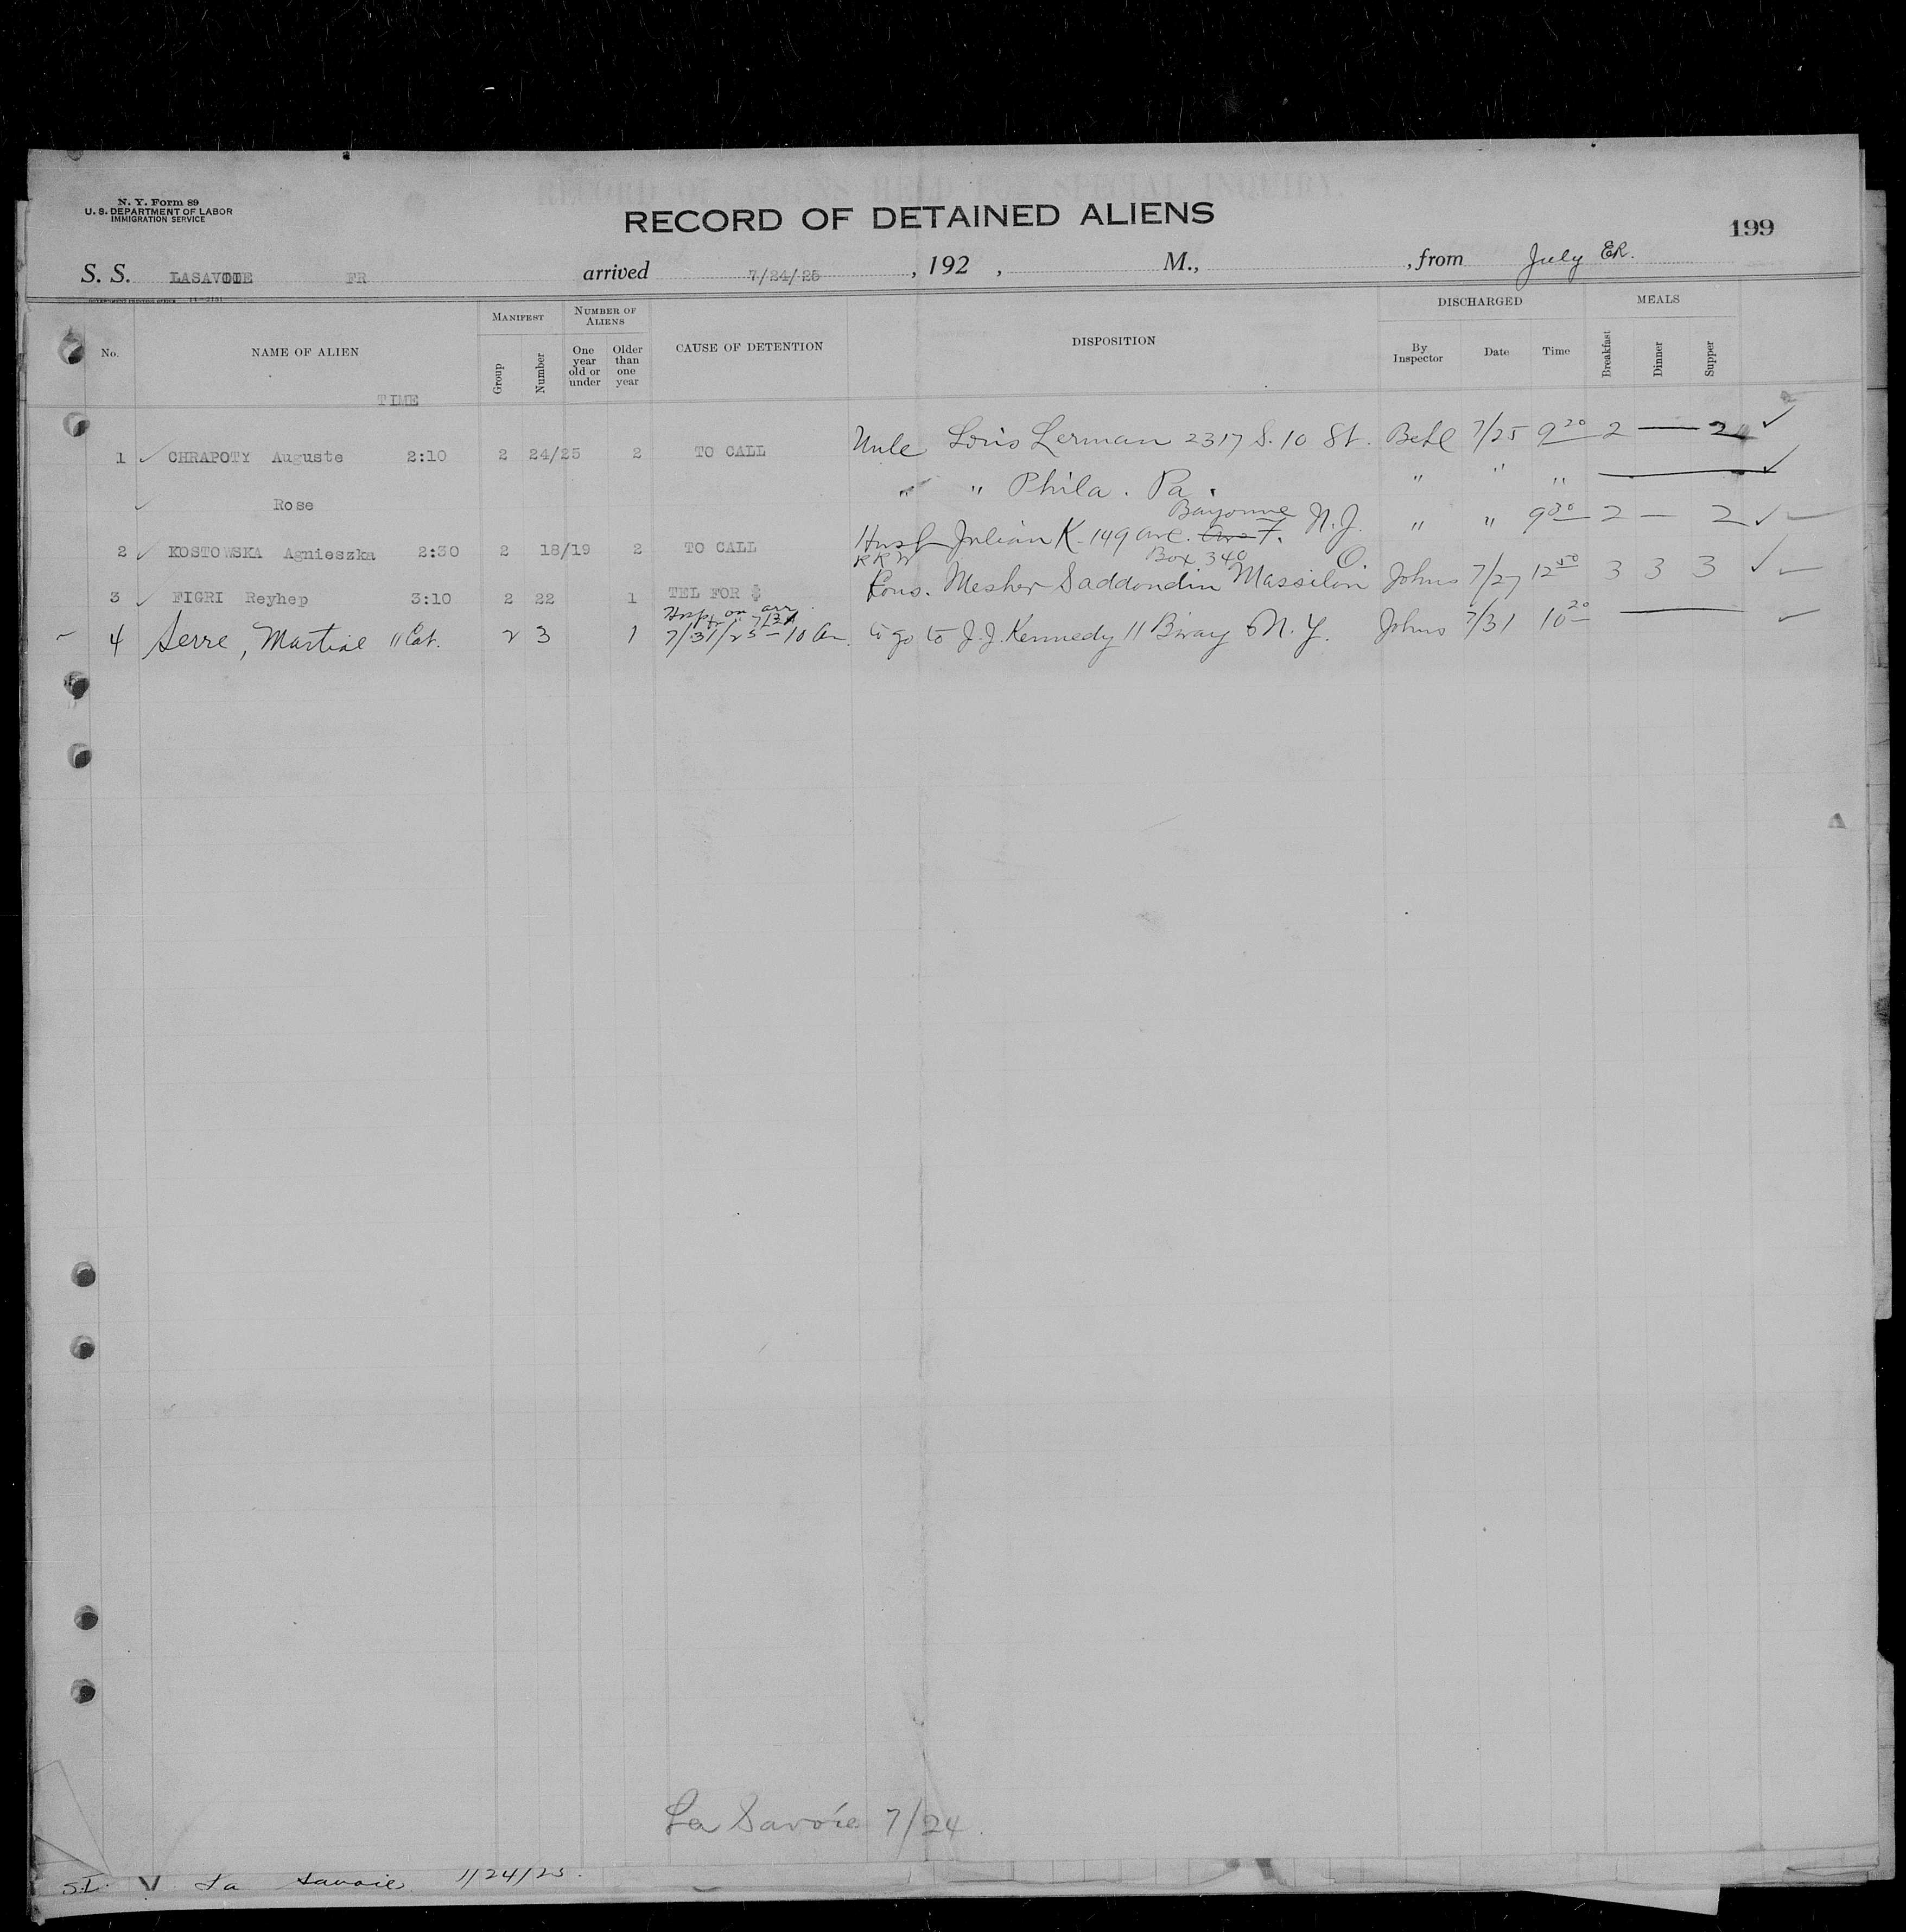 N. Y. Form 89
U. S. DEPARTMENT OF LABOR
IMMIGRATION SERVICE
RECORD OF DETAINED ALIENS
199
S. S. LASAVOIE FR arrived 7/24/25, 192 , M., , from July ER.
No. NAME OF ALIEN TIME
MANIFEST Group Number
NUMBER OF ALIENS One year old or under Older than one year
CAUSE OF DETENTION
DISPOSITION
DISCHARGED By Inspector Date Time
MEALS Breakfast Dinner Supper
1 ✓ CHRAPOTY Auguste 2:10 2 24/25 2 TO CALL Unle Louis Lerman 2317 S. 10 St. 7/25 9 20 2 — 2 ✓
✓ Rose " " Phila. Pa. " " " ✓
Bayonne
2 ✓ KOSTOWSKA Agnieszka 2:30 2 18/19 2 TO CALL Husb Julian K. 149 ave. F. N.J. " " 9 30 2 — 2 ✓
Box 340
3 ✓ FIGRI Reyhep 3:10 2 22 1 TEL FOR $ Cous. Mesher Saddondin Massilon O. Johns 7/27 12 50 3 3 3 ✓
Hosp. on arr.
4 Serre, Martial 2 3 1 7/31/25 - 10 am. to go to J. J. Kennedy 11 Bway N. Y. Johns 7/31 10 20 ✓
La Savoie 7/24
S.I. V La Savoie